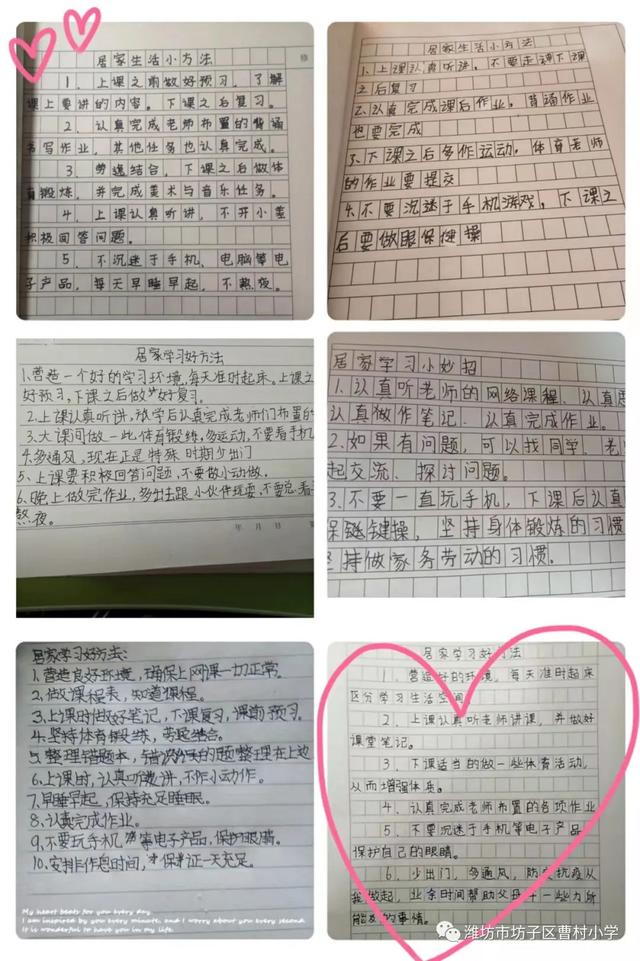 居家生活小方法
1、上课之前做好预习,了解
课上要讲的内容。下课之后复习。
2、认真完成老师布置的背诵
书写作业,其他任务也认真完成。
3、劳逸结合,下课之后做体
育锻炼,并完成美术与音乐任务。
4、上课认真听讲,不开小差
积极回答问题。
5、不沉迷于手机、电脑等电
子产品,每天早睡早起,不熬夜。
居家生活小方法
1、上课认真听讲,不要走神下课
之后复习
2、认真完成课后作业,背诵作业
也要完成
3、下课之后多作运动,体育老师
的作业要提交
4、不要沉迷于手机游戏,下课之
后要做眼保健操
居家学习好方法
1、营造一个好的学习环境,每天准时起床。上课之
好预习,下课之后做好复习。
2、上课认真听讲,放学后认真完成老师们布置的
3、大课间做一些体育锻炼,多运动,不要看手机
4、多通风,现在正是特殊时期少出门
5、上课要积极回答问题,不要做小动做。
6、晚上做完作业,多出去跟小伙伴玩耍,不要总看
熬夜。
年 月 日
居家学习小妙招
1、认真听老师的网络课程、认真思
认真做作笔记、认真完成作业。
2、如果有问题,可以找同学、老
起交流、探讨问题。
3、不要一直玩手机,下课后认真
保健操,坚持身体锻炼的习惯
坚持做家务劳动的习惯。
居家学习好方法:
1、营造良好环境,确保上网课一切正常。
2、做课程表,知道课程。
3、上课时做好笔记,下课复习,课前预习。
4、坚持体育锻练,劳逸结合。
5、整理错题本,错的题整理在上边
6、上课时,认真听讲,不作小动作。
7、早睡早起,保持充足睡眠。
8、认真完成作业。
9、不要玩手机等电子产品,保护眼睛。
10、安排作息时间,保证一天充足。
My heart beats for you every day.
I am inspired by you every minute, and I worry about you every second.
It is wonderful to have you in my life.
居家学习好方法
1、营造好的环境,每天准时起床
区分学习生活空间。
2、上课认真听老师讲课,并做好
课堂笔记。
3、下课适当的做一些体育活动,
从而增强体质。
4、认真完成老师布置的各项作业
5、不要沉迷于手机等电子产品
保护自己的眼睛。
6、少出门,多通风,防疫抗疫从
我做起,业余时间帮助父母干一些力所
能及的事情。
潍坊市坊子区曹村小学